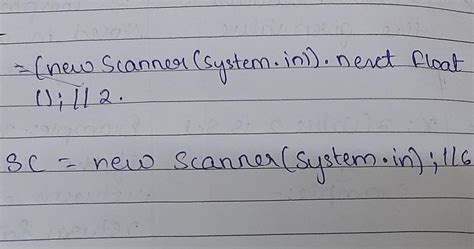 =(new Scanner(System.in)).next float
();//2.
SC = new Scanner(System.in);//6